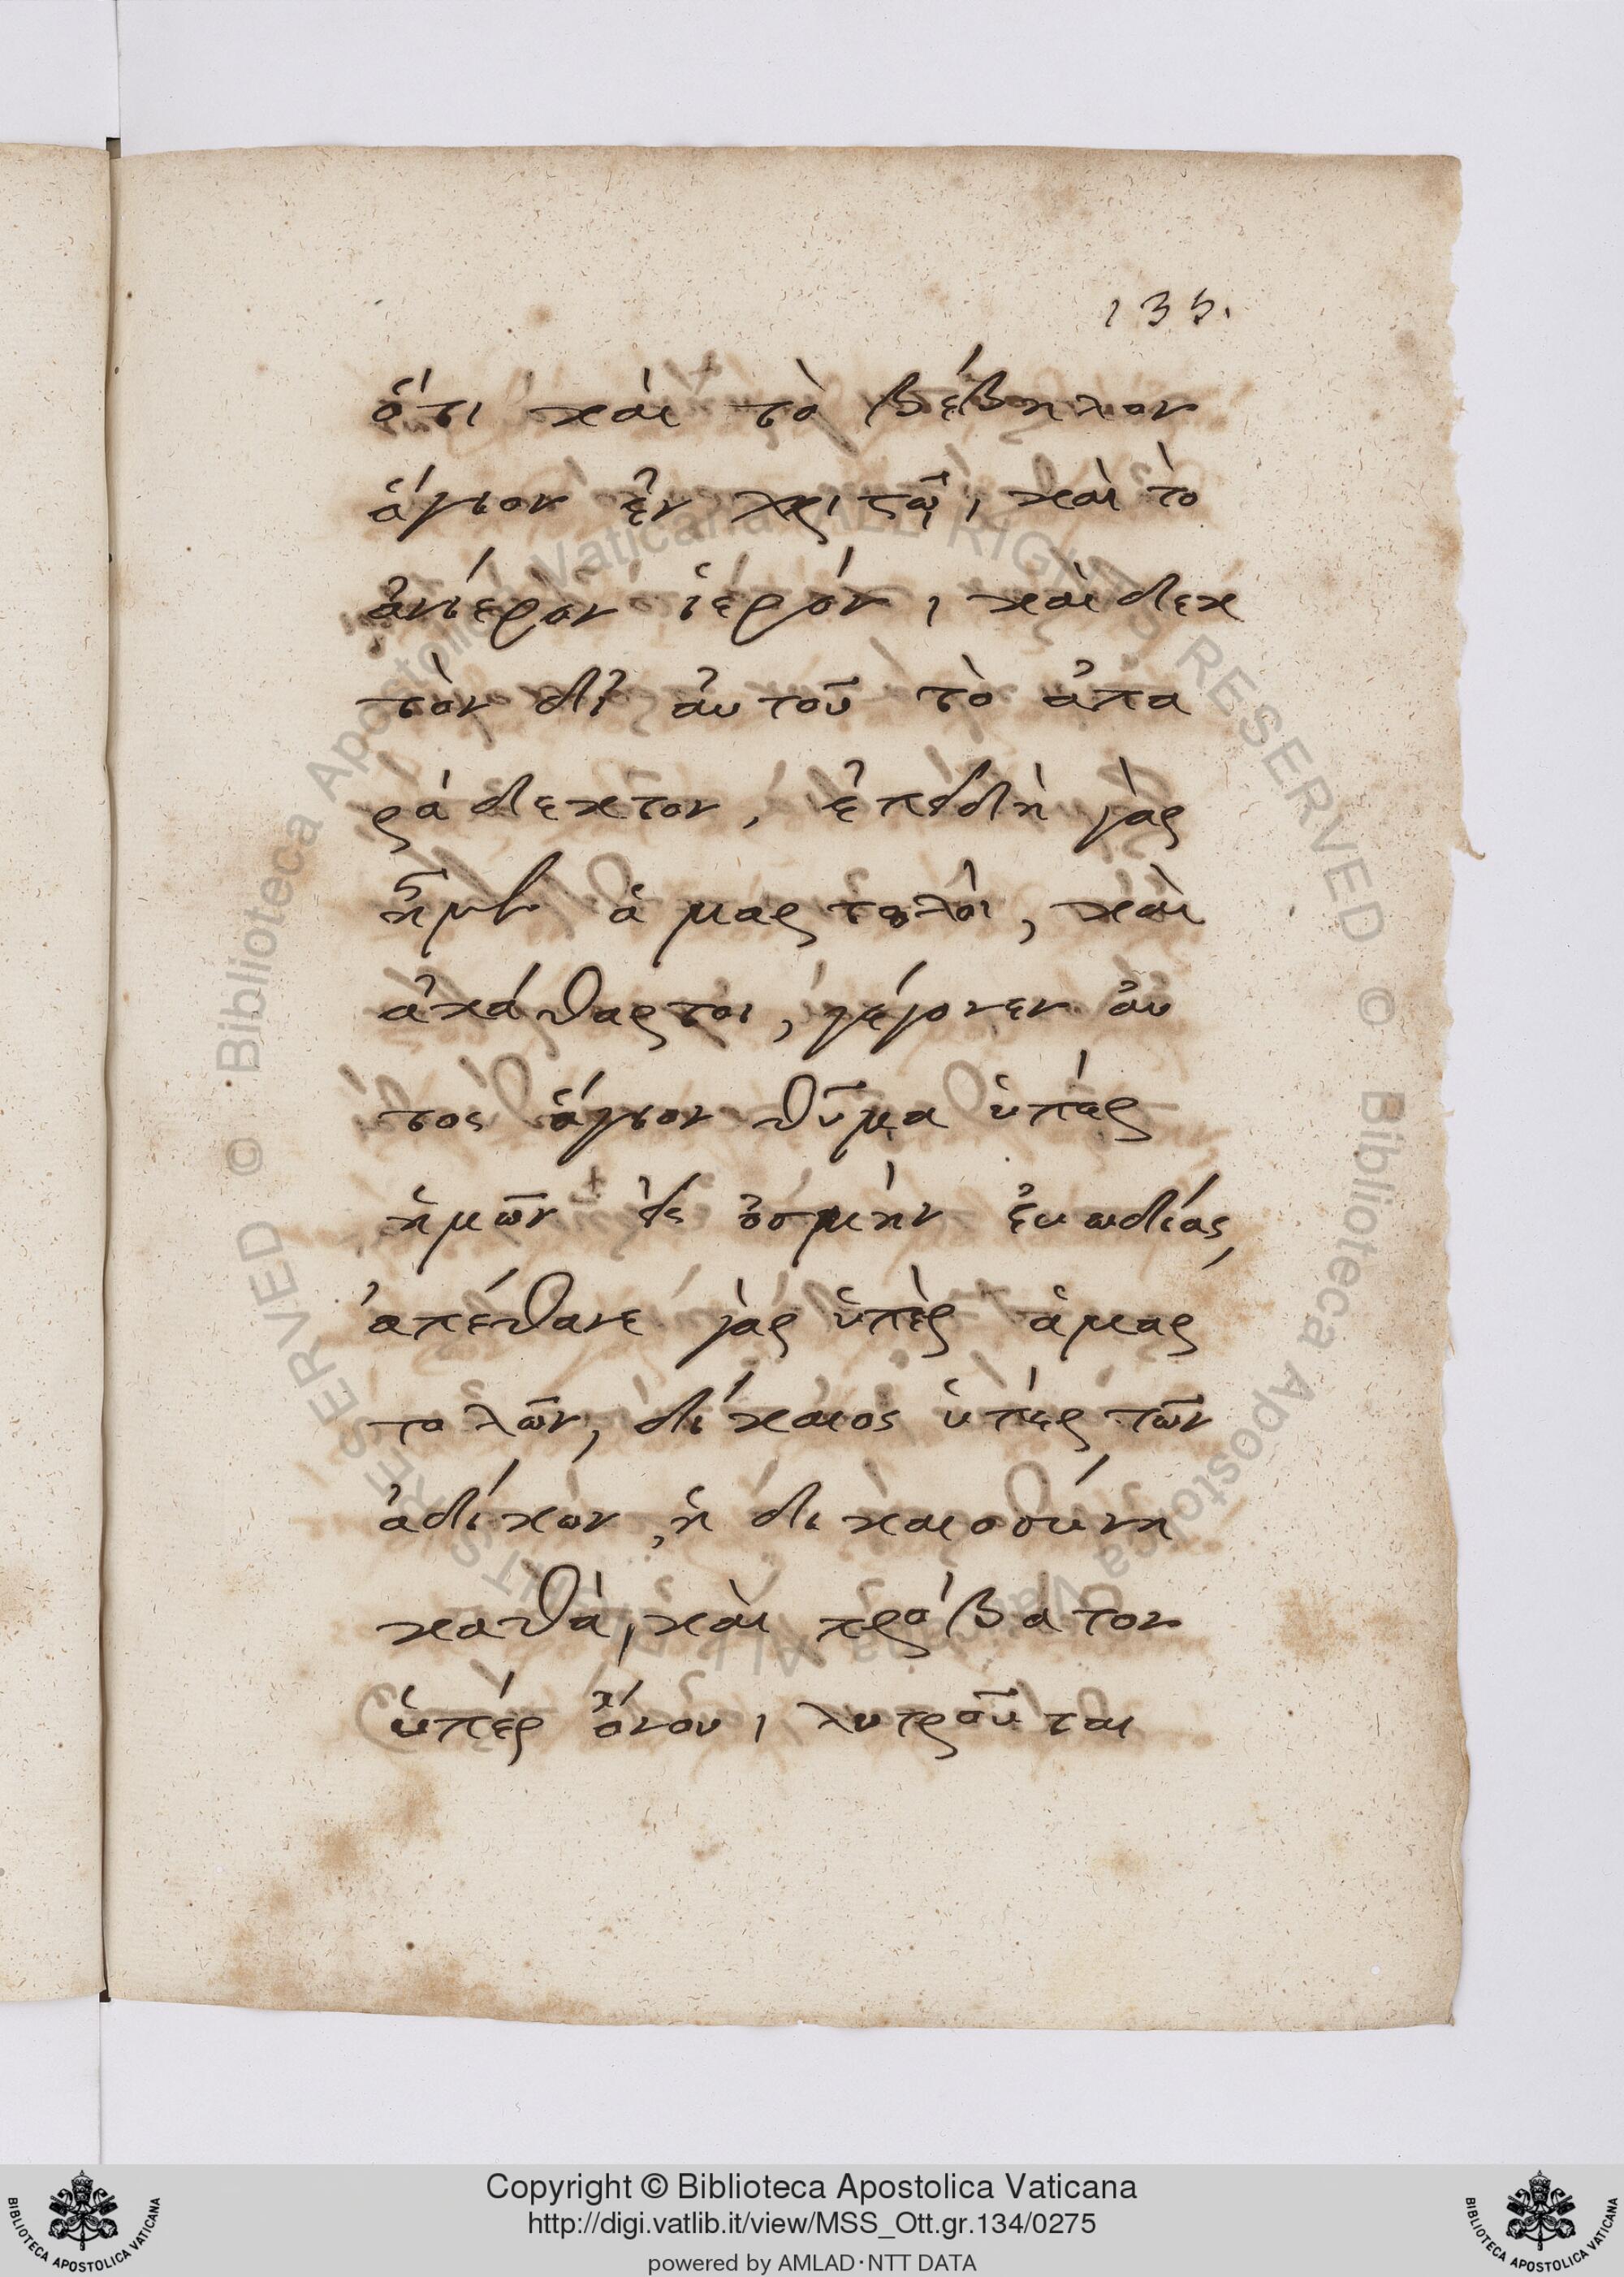 135.
ὅτι καὶ τὸ βέβηλον
ἅγιον ἐν χριστῷ, καὶ τὸ
ἀνίερον ἱερόν, καὶ δεκ
τὸν δι᾽ ἀυτοῦ τὸ ἀπα
ράδεκτον, ἐπειδὴ γὰρ
ἦμεν ἁμαρτολὸι, καὶ
ἀκάθαρτοι, γέγονεν ἀυ
τος ἅγιον θῦμα ὑπέρ
ἡμῶν εἰς ὀσμήν ἐυωδίας,
ἀπέθανε γὰρ ὑπὲρ ἁμαρ
τολῶν, δίκαιος ὑπέρ τῶν
ἀδίκων, ἡ δικαιοσύνη
καθὰ, καὶ πρόβατον
ὑπέρ ὄνου, λυτροῦται
Copyright © Biblioteca Apostolica Vaticana
http://digi.vatlib.it/view/MSS_Ott.gr.134/0275
powered by AMLAD·NTT DATA
BIBLIOTECA APOSTOLICA VATICANA
BIBLIOTECA APOSTOLICA VATICANA
© Biblioteca Apostolica Vaticana ALL RIGHTS RESERVED
© Biblioteca Apostolica Vaticana ALL RIGHTS RESERVED